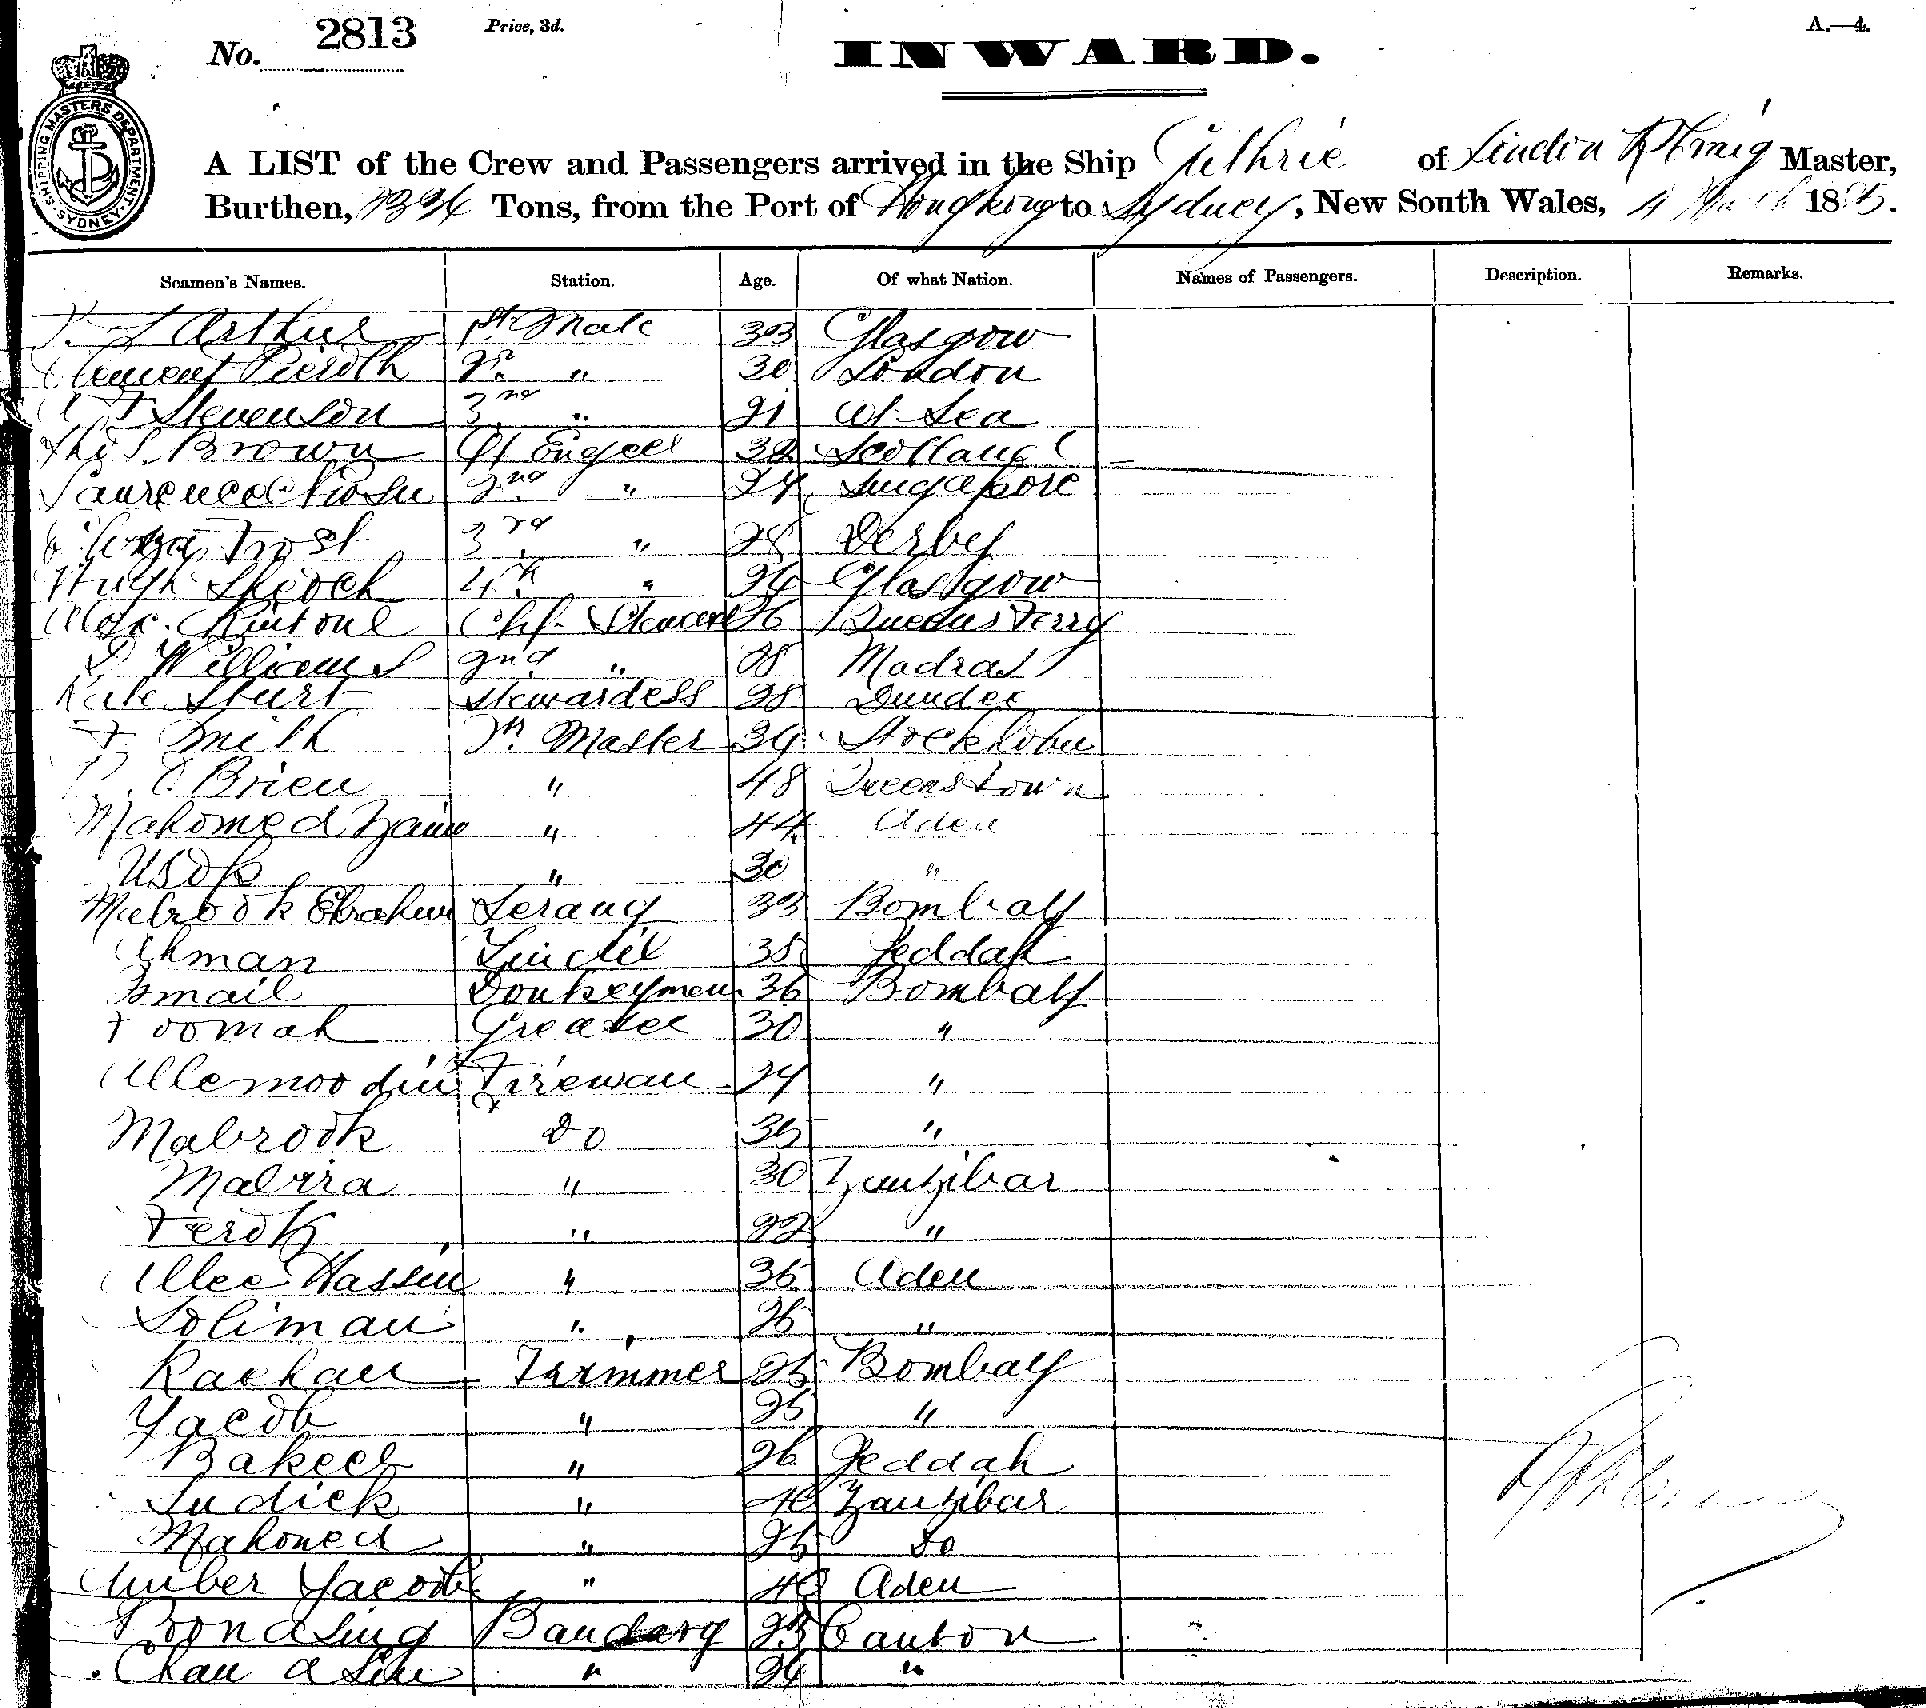 No. 2813 Price, 3d. INWARD. A.—4.
SHIPPING MASTERS DEPARTMENT SYDNEY
A LIST of the Crew and Passengers arrived in the Ship Guthrie of London Master,
Burthen, Tons, from the Port of Hongkong to Sydney, New South Wales, 4 March 1885.
Seamen's Names. Station. Age. Of what Nation. Names of Passengers. Description. Remarks.
Arthur 1st Mate 33 Glasgow
Clement 2nd " 30 London
Stevenson 3rd " 21 At Sea
Thos S. Brown Engeer Scotland
Laurence 2nd " 24 Singapore
Frost 3rd " 28 Derby
Hugh 4th " Glasgow
Alex. Kintone Chf. Steward 26 Queens Ferry
Williams 2nd " 28 Madras
Kate Sturt Stewardess 28 Dundee
F Smith Master Stockholm
O Brien " 48 Queenstown
Mahomed " 44 Aden
Usop " 30 "
Mabrook Ebrahim Serang 33 Bombay
Ahman Tindel 35 Jeddah
Ismail Donkeyman 36 Bombay
Toomah Greaser 30 "
Allemoodin Fireman 24 "
Mabrook Do 35 "
Mabria " 30 Zanzibar
Ferok " 22 "
Allee Hassin " 36 Aden
Soliman " 26 "
Raehan Trimmer 25 Bombay
Yacob " 25 "
Bakeer " 26 Jeddah
Sudick " 40 Zanzibar
Mahomed " 25 Do
Amber Yacoob " 40 Aden
Canton
Chan A " 24 "